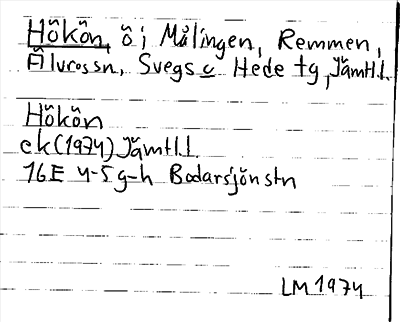 Hökön, ö i Målingen, Remmen,
Älvrossn, Svegs o Hede tg, Jämtl.l.
Hökön
ek (1974) Jämtl.l.
16E 4-5 g-h Bodarsjön stn
LM 1974